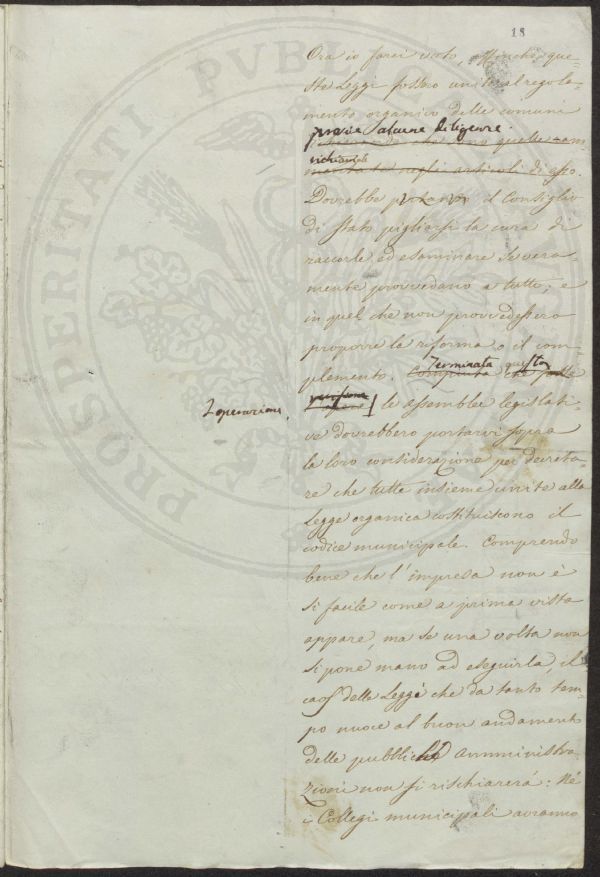 18
PROSPERITATI PVBLICAE
Ora io farei voto, affinchè que-
ste Leggi fossero unite al regola-
mento organico delle comuni
previe alcune diligenze.
che sono quelle
richiamate
negli articoli di esso.
Dovrebbe pertanto il Consiglio
di Stato pigliarsi la cura di
raccorle ed esaminare se vera-
mente provvedano a tutto; e
in quel che non provvedessero
proporre la riforma o il com-
plemento. Terminata questa
Compiuta che fosse
revisione
l'operazione,
opera le assemblee legislati-
ve dovrebbero portarvi sopra
la loro considerazione per decreta-
re che tutte insieme unite alla
Legge organica costituiscono il
codice municipale. Comprendo
bene che l'impresa non è
sì facile come a prima vista
appare, ma se una volta non
si pone mano ad eseguirla, il
caos delle Leggi che da tanto tem-
po nuoce al buon andamento
delle pubbliche amministra-
zioni non si rischiarerà: Né
i Collegi municipali avranno